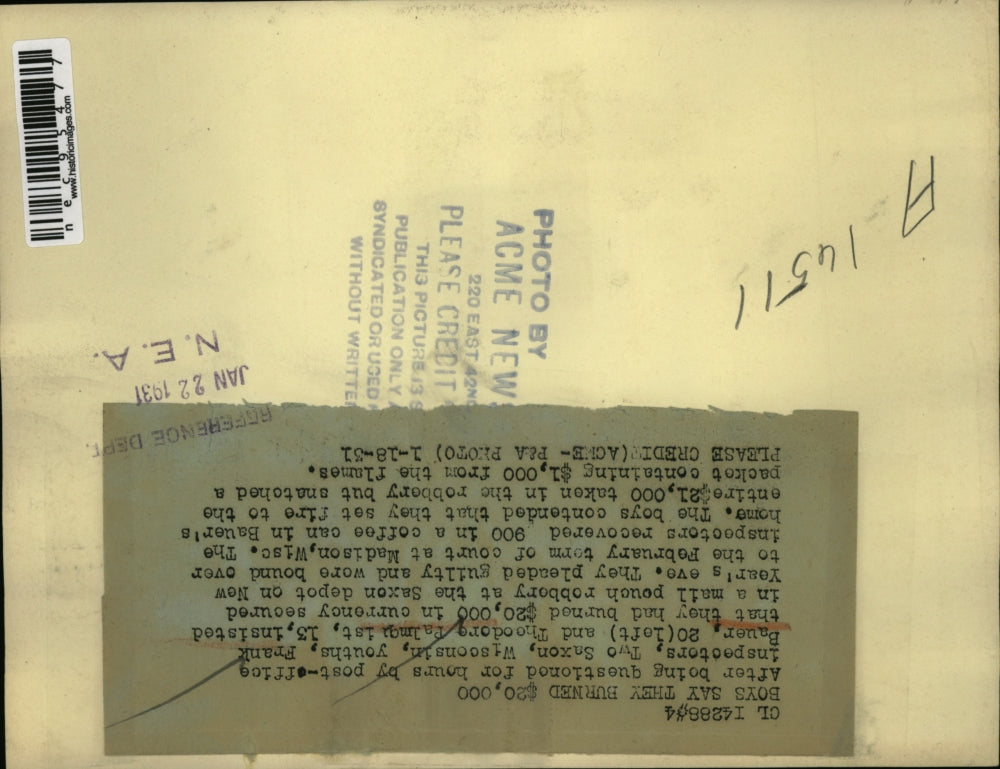 CL I428844
BOYS SAY THEY BURNED $20,000
After being questioned for hours by post-office
inspectors, Two Saxon, Wisconsin, youths, Frank
Bauer, 20(left) and Theodore Palmquist, 13,insisted
that they had burned $20,000 in currency secured
in a mail pouch robbery at the Saxon depot on New
Year's eve. They pleaded guilty and were bound over
to the February term of court at Madison,Wisc. The
inspectors recovered 900 in a coffee can in Bauer's
home. The boys contended that they set fire to the
entire$21,000 taken in the robbery but snatched a
packet containing $1,000 from the flames.
PLEASE CREDIT(ACME- P&A PHOTO) 1-18-31
REFERENCE DEPT.
JAN 22 1931
N. E. A.
PHOTO BY
ACME NEWS
220 EAST 42ND
PLEASE CREDIT
THIS PICTURE IS
PUBLICATION ONLY
SYNDICATED OR USED
WITHOUT WRITTEN
A
nec95477
www.historicimages.com